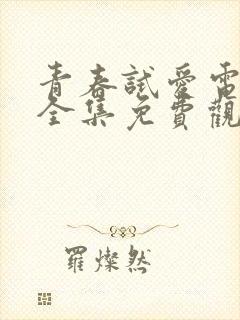 青春試愛電
全集免費觀
羅燦然